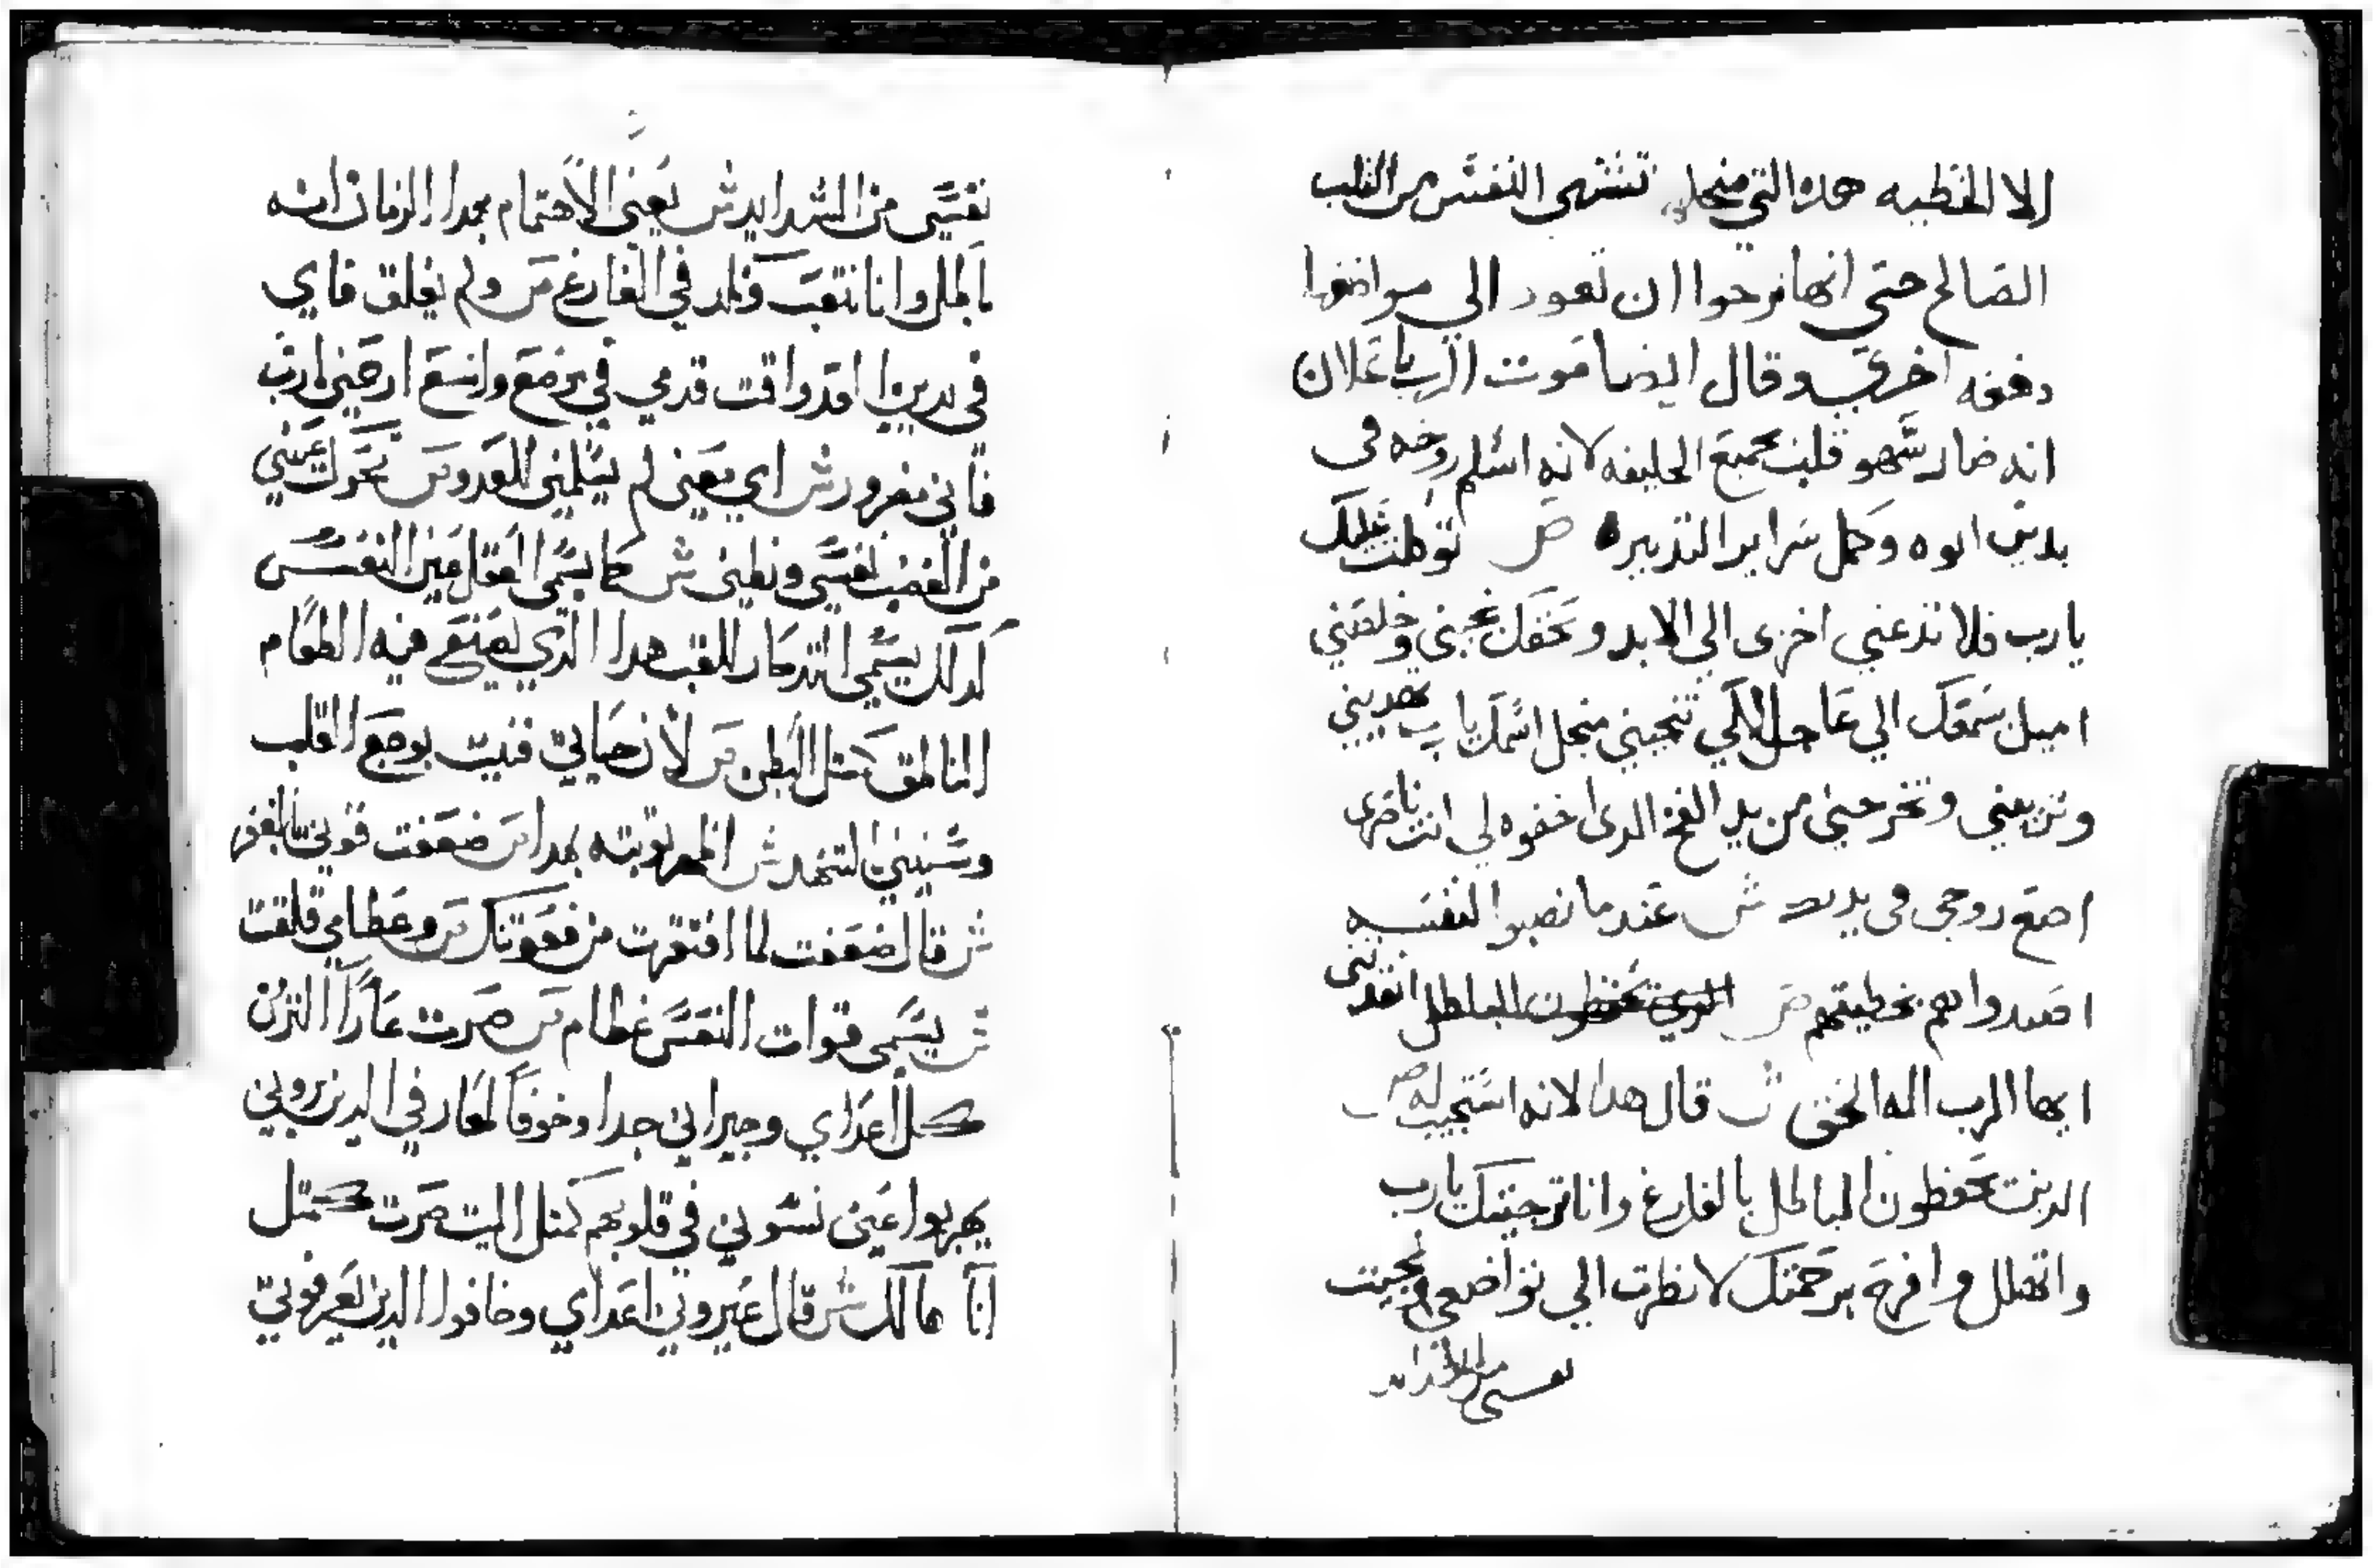 الا الخطيه هده التي منجلها تشتهي النفس من القلب
الصالح حتى انها نرجوا ان تعود الي مواضعها
دفعه اخري وقال ايضا موت الرب باعلان
انه صار شهو قلب جميع الخليفه لانه اسلم روحه في
يدين ابوه وكمل سراير التدبيره ص توكلت عليك
يارب فلا تدعني اخزى الي الابد وبحقك نجيني وخلصني
اميل سمعك الي عاجل لكي تنجيني منجل اسمك يارب تهديني
وتربيني وتخرجني من يد الفخ الدى اخفوه لي انت ناصرى
اضع روحي في يديك ش عندما نصبوا لنفسه
اصيدوا هم بخطيتهم ص انقدتني
ايها الرب اله الحق ش قال هدا لانه استجيب له ص
الدين تحفظون الباطل بالفارغ وانا ترجيتك يارب
واتهلل وافرح برحمتك لانظرت الي تواضعي ونجيت
نفسي من الشدايد
نفسي من الشدايد ش يعني الاهتمام بهدا الزمان انه
باطل وانا نتعب كلد في الفارغ ص ولم يغلق فاي
في يدين اعد واقت قدمي في موضع واسع ارحمني يارب
فاني مغرور ش اي معني لم يسلمني للعدو ص تحوك عيني
من الغضب نفسي وبطني ش كما يسمى العقل عين النفس
كدلك يسمي التدكار للقب هدا الدي يصنع فيه الطعام
الناطق كمثل البطن ص لان حياتي فنيت بوجع القلب
وسنيني التنهد ش اظهر توبته بهدا ص ضعفت قوتي بالفقر
ش قال ضعفت لما افتقرت من معونتك ص وعظامي قلقت
ش يسمى قوات النفس عظام ص صرت عارا اكثر من
كل اعداي وجيراني جدا وخوفا لمعارفي الدين يروني
يهربوا عني نسوني في قلوبهم كمثل الميت صرت كمثل
انا هالك ش قال عيروني اعداي وخافوا الدين يعرفوني